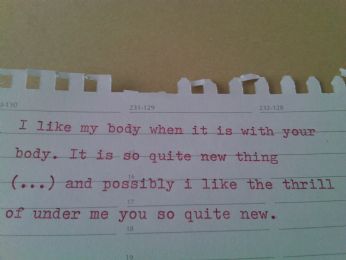 8-130 231-129 232-128
I like my body when it is with your
body. It is so quite new thing
16
(...) and possibly i like the thrill
17
of under me you so quite new.
18
19